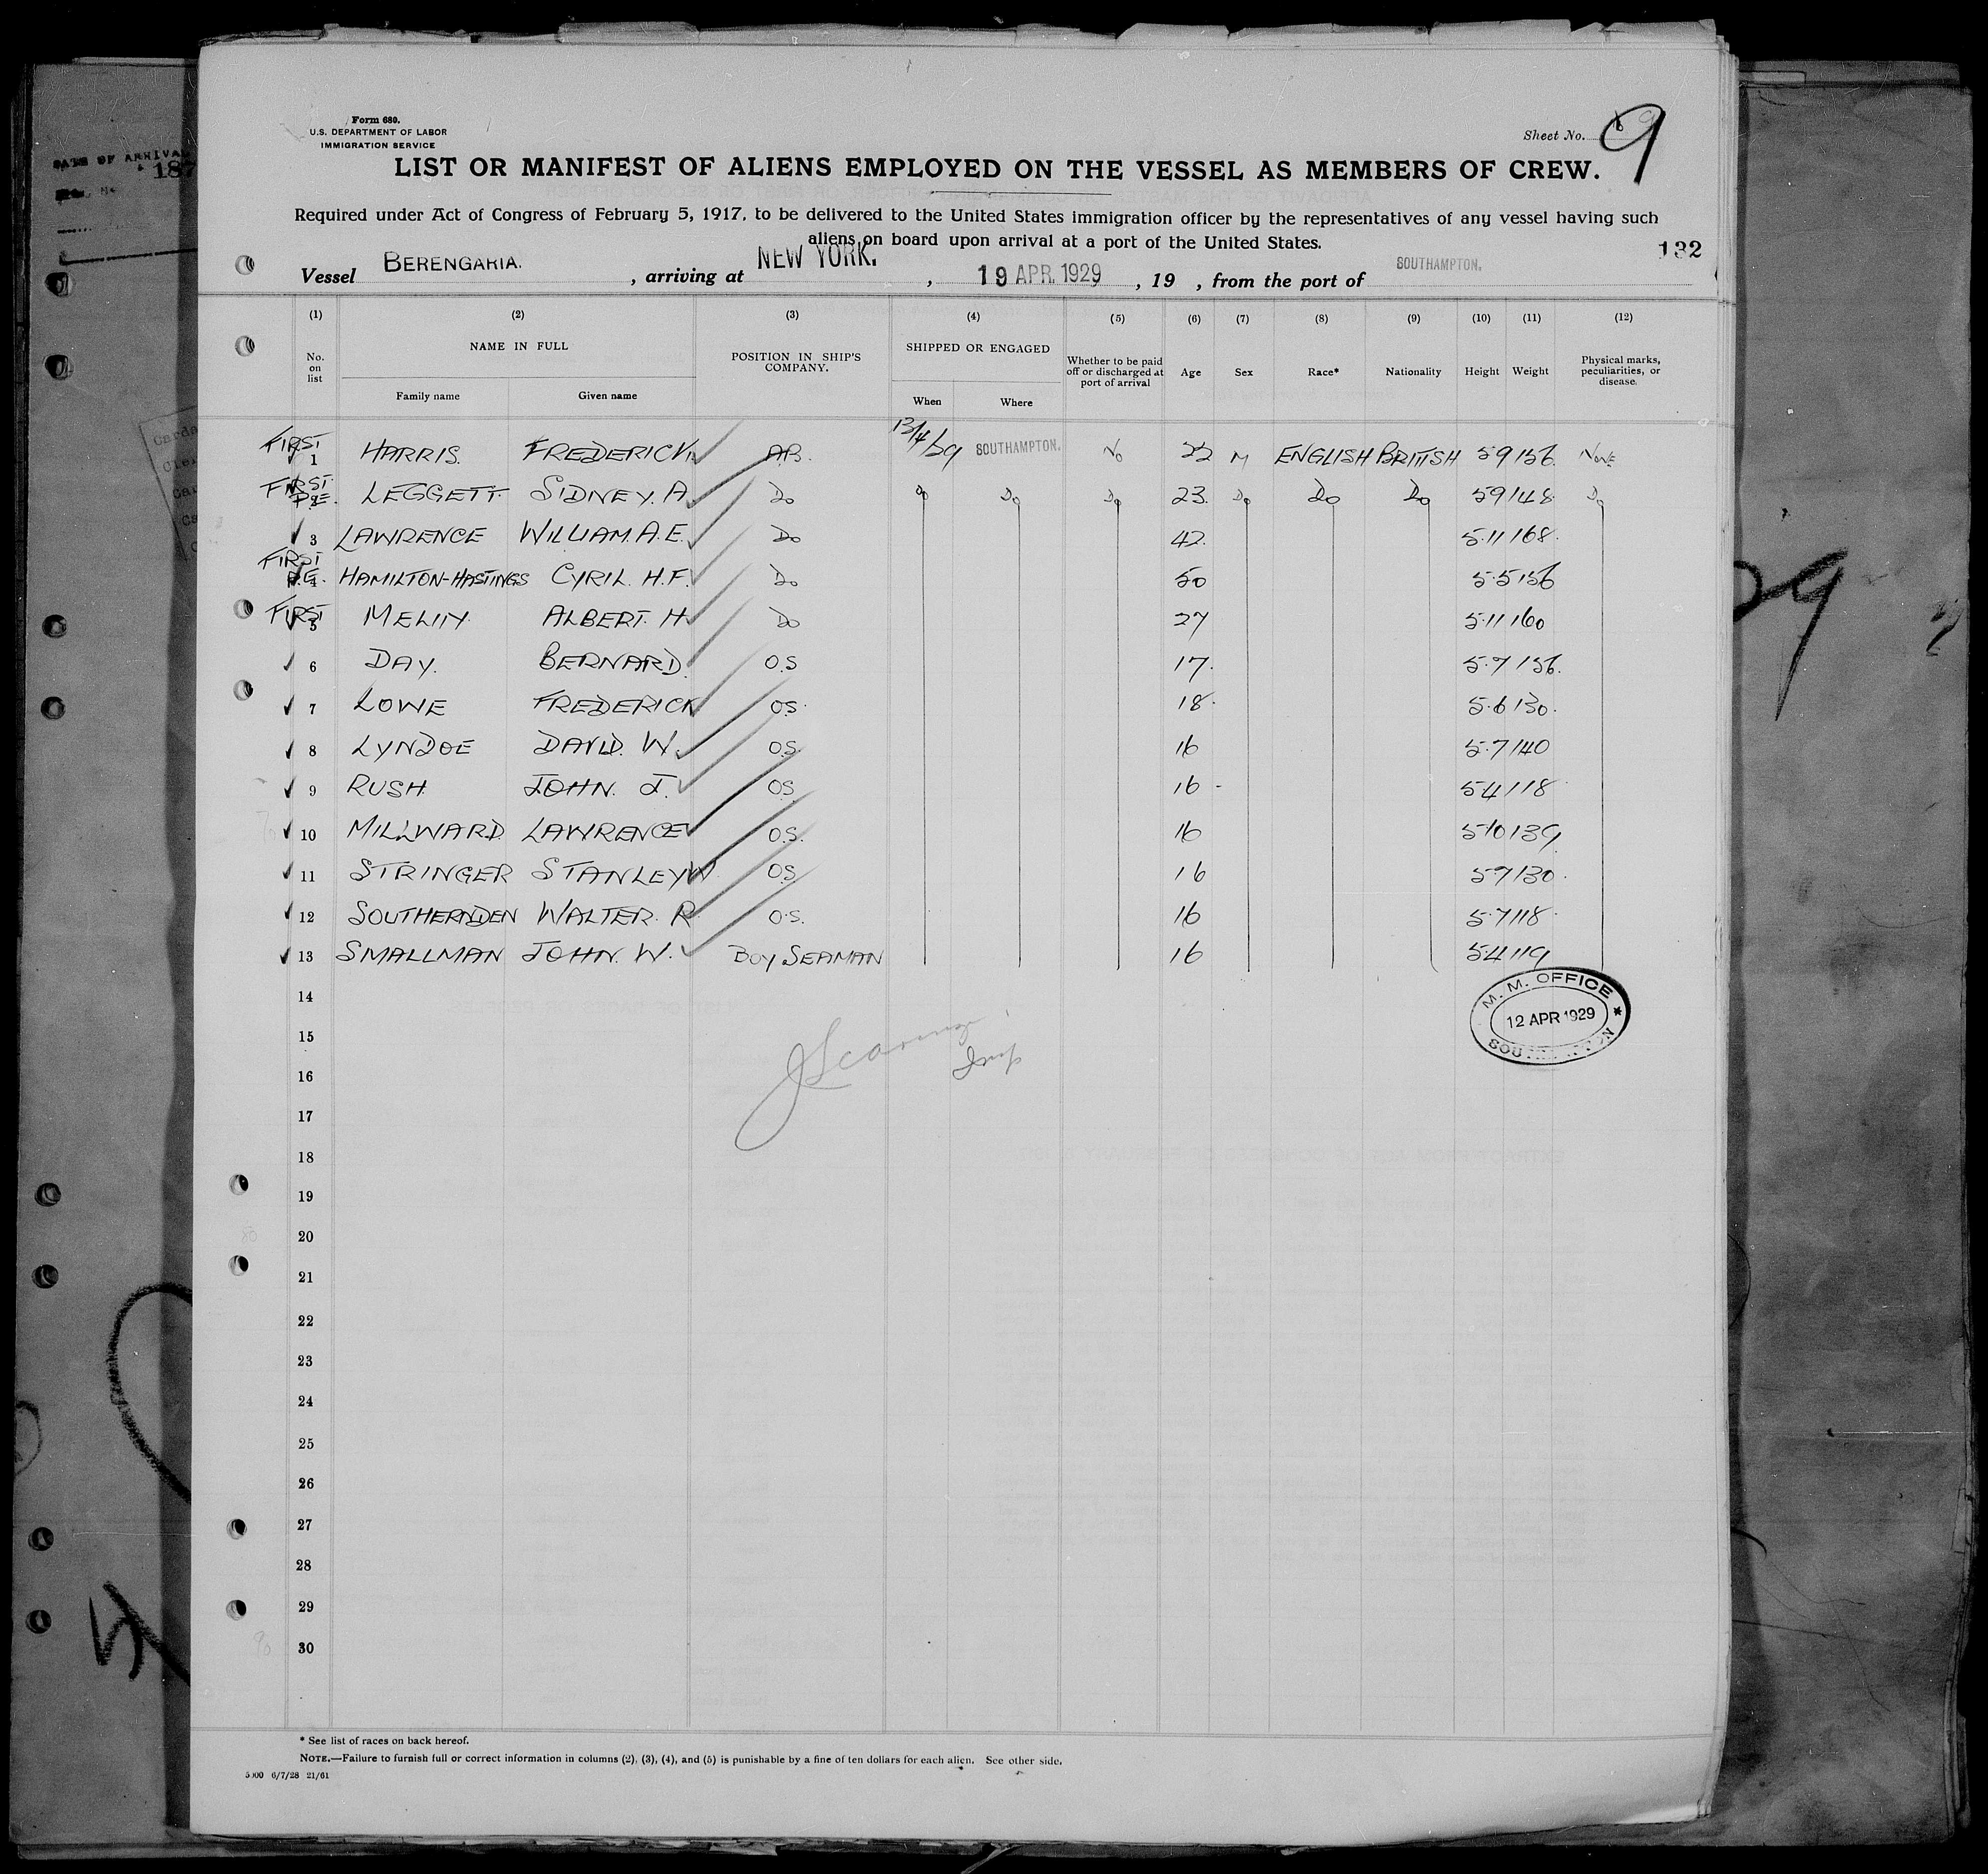 DATE OF ARRIVAL
187
Form 680.
U.S. DEPARTMENT OF LABOR
IMMIGRATION SERVICE
Sheet No. 9
LIST OR MANIFEST OF ALIENS EMPLOYED ON THE VESSEL AS MEMBERS OF CREW.
Required under Act of Congress of February 5, 1917, to be delivered to the United States immigration officer by the representatives of any vessel having such
aliens on board upon arrival at a port of the United States.
132
Vessel BERENGARIA. , arriving at NEW YORK. , 19 APR. 1929 , 19 , from the port of SOUTHAMPTON.
(1) (2) (3) (4) (5) (6) (7) (8) (9) (10) (11) (12)
No. on list NAME IN FULL POSITION IN SHIP'S COMPANY. SHIPPED OR ENGAGED Whether to be paid off or discharged at port of arrival Age Sex Race* Nationality Height Weight Physical marks, peculiarities, or disease.
Family name Given name When Where
FIRST 1 HARRIS. FREDERICK. A.B. 13/4/29 SOUTHAMPTON. No 22 M ENGLISH BRITISH 59 156 None
FIRST 2 LEGGETT SIDNEY. A. Do Do Do Do 23. Do Do Do 59 148 Do
3 LAWRENCE WILLIAM. A. E. Do 42. 5.11 168.
FIRST 4 HAMILTON-HASTINGS CYRIL. H.F. Do 50 5.5 156
FIRST 5 ALBERT. H. Do 27 5.11 160
6 DAY. BERNARD. O.S 17. 5.7 156.
7 LOWE FREDERICK O.S. 18. 5.6 130.
8 LYNDOE DAVID. W. O.S. 16 5.7 140
9 RUSH. JOHN. J. O.S. 16 - 5.4 118
10 MILLWARD. LAWRENCE O.S. 16 5.10 139
11 STRINGER STANLEY W O.S. 16 5.9 130.
12 SOUTHERNDEN WALTER. R. O.S. 16 5.7 118.
13 SMALLMAN JOHN. W. BOY SEAMAN 16 5.4 119
14
M. M. OFFICE
12 APR 1929
15
16
17
18
19
20
21
22
23
24
25
26
27
28
29
30
* See list of races on back hereof.
NOTE.—Failure to furnish full or correct information in columns (2), (3), (4), and (5) is punishable by a fine of ten dollars for each alien. See other side.
5000 6/7/28 21/61